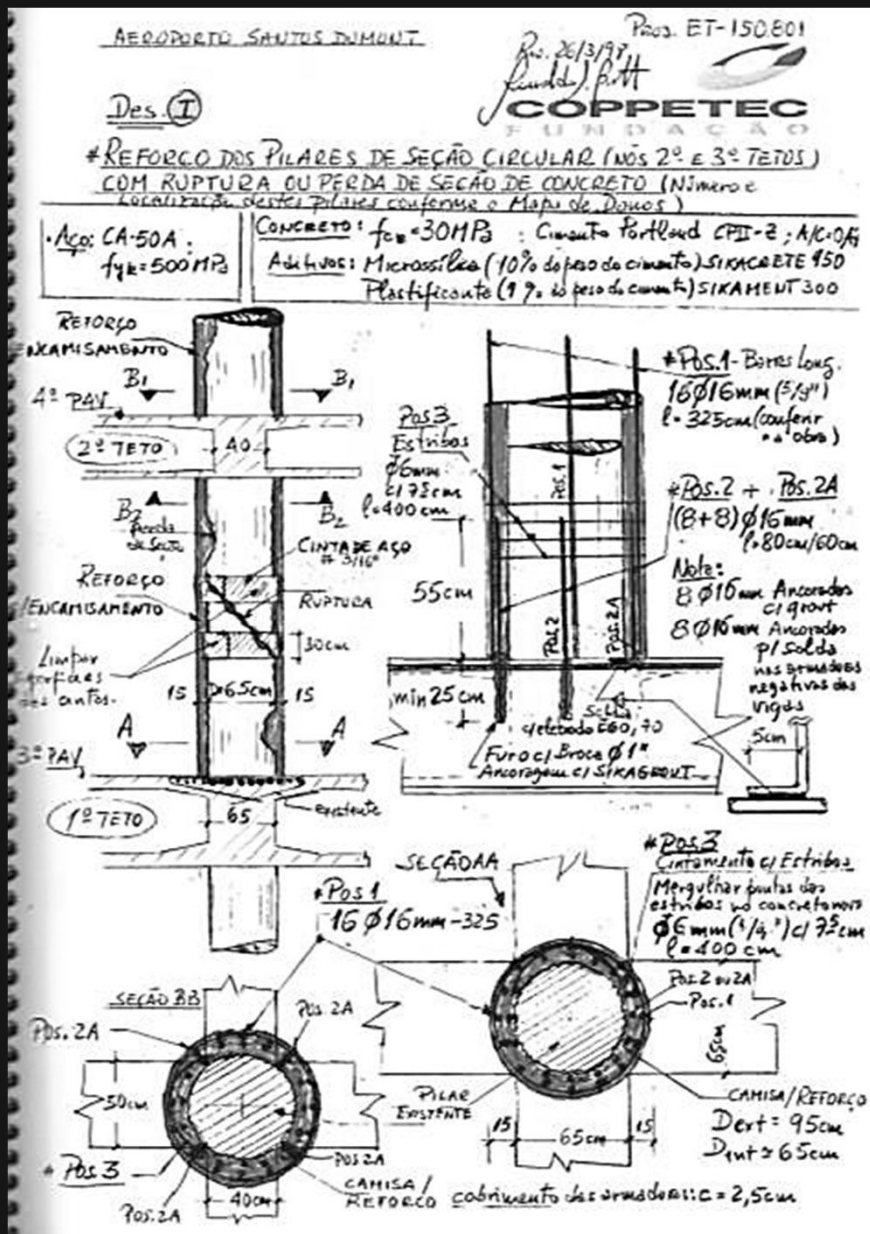 AEROPORTO SANTOS DUMONT
PROJ. ET-150.801
Rev. 26/3/98
COPPETEC
FUNDAÇÃO
Des. I
*REFORÇO DOS PILARES DE SEÇÃO CIRCULAR (NOS 2º E 3º TETOS)
COM RUPTURA OU PERDA DE SEÇÃO DE CONCRETO (Número e
Localização destes Pilares conforme o Mapa de Danos)
• Aço: CA-50A.
fyk=500MPa
CONCRETO: fck=30MPa : Cimento Portland CPII-Z; A/C=
Aditivos: Microssílica (10% do peso do cimento) SIKACRETE 950
Plastificante (1% do peso do cimento) SIKAMENT 300
REFORÇO
ENCAMISAMENTO
B1
B1
4º PAV
2º TETO
40
B2
B2
Perda
de Seção
CINTA DE AÇO
# 3/16"
REFORÇO
/ENCAMISAMENTO
RUPTURA
30cm
Limpar
15
D=65cm
15
A
A
3º PAV
existente
1º TETO
65
Pos3
Estribos
ϕ6mm
c/7,5cm
l=400cm
Pos.1
55cm
Pos.2
Pos.2A
min 25cm
Solda
c/eletrodo E60,70
Furo c/ Broca ϕ1"
Ancoragem c/ SIKAGROUT
*Pos.1-Barras Long.
16ϕ16mm (5/8")
l=325cm (conferir
na obra)
*Pos.2 + Pos.2A
(8+8)ϕ16mm
l=80cm/60cm
Nota:
8ϕ16mm Ancorados
c/ grout
8ϕ16mm Ancorados
p/ Solda
nas armadões
negativas das
vigas
5cm
SEÇÃO AA
*Pos 1
16ϕ16mm-325
*Pos3
Cintamento c/ Estribos
Mergulhar pontas dos
estribos no concreto novo
ϕ6mm (1/4") c/ 7,5cm
l=400cm
Pos 2 ou 2A
Pos.1
65cm
PILAR
EXISTENTE
15
65cm
15
CAMISA/REFORÇO
Dext = 95cm
Dint ≅ 65cm
SEÇÃO BB
Pos. 2A
Pos. 2A
50cm
* Pos 3
Pos 2A
Pos. 2A
40cm
CAMISA/
REFORÇO
cobrimento das armaduras: c = 2,5cm